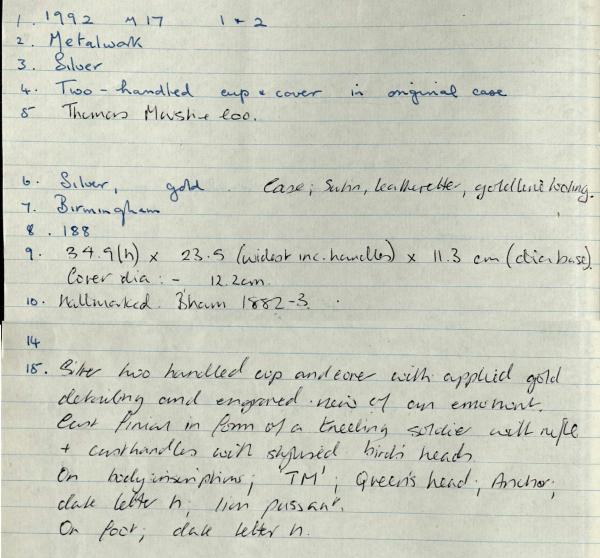 1. 1992 M17 1+2
2. Metalwork
3. Silver
4. Two-handled cup & cover in original case
5 Thomas
6. Silver, gold. Case; Satin, leatherette, goldline tooling.
7. Birmingham
8. 188
9. 34.9(h) x 23.5 (widest inc. handles) x 11.3 cm (dia base).
Cover dia: - 12.2cm.
10. Hallmarked. B'ham 1882-3.
14
15. Silver two handled cup and cover with applied gold
detailing and engraved view of an
Cast finial in form of a kneeling soldier with rifle
+ cast handles with stylised bird's heads
On body inscriptions; 'TM'; Queen's head; Anchor;
date letter h; lion passant.
On foot; date letter h.